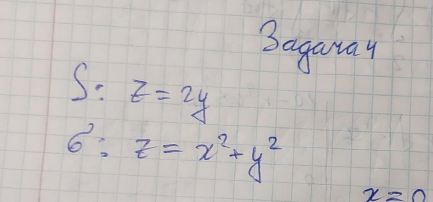 Задача 4
S: z = 2y
σ: z = x² + y²
x = 0